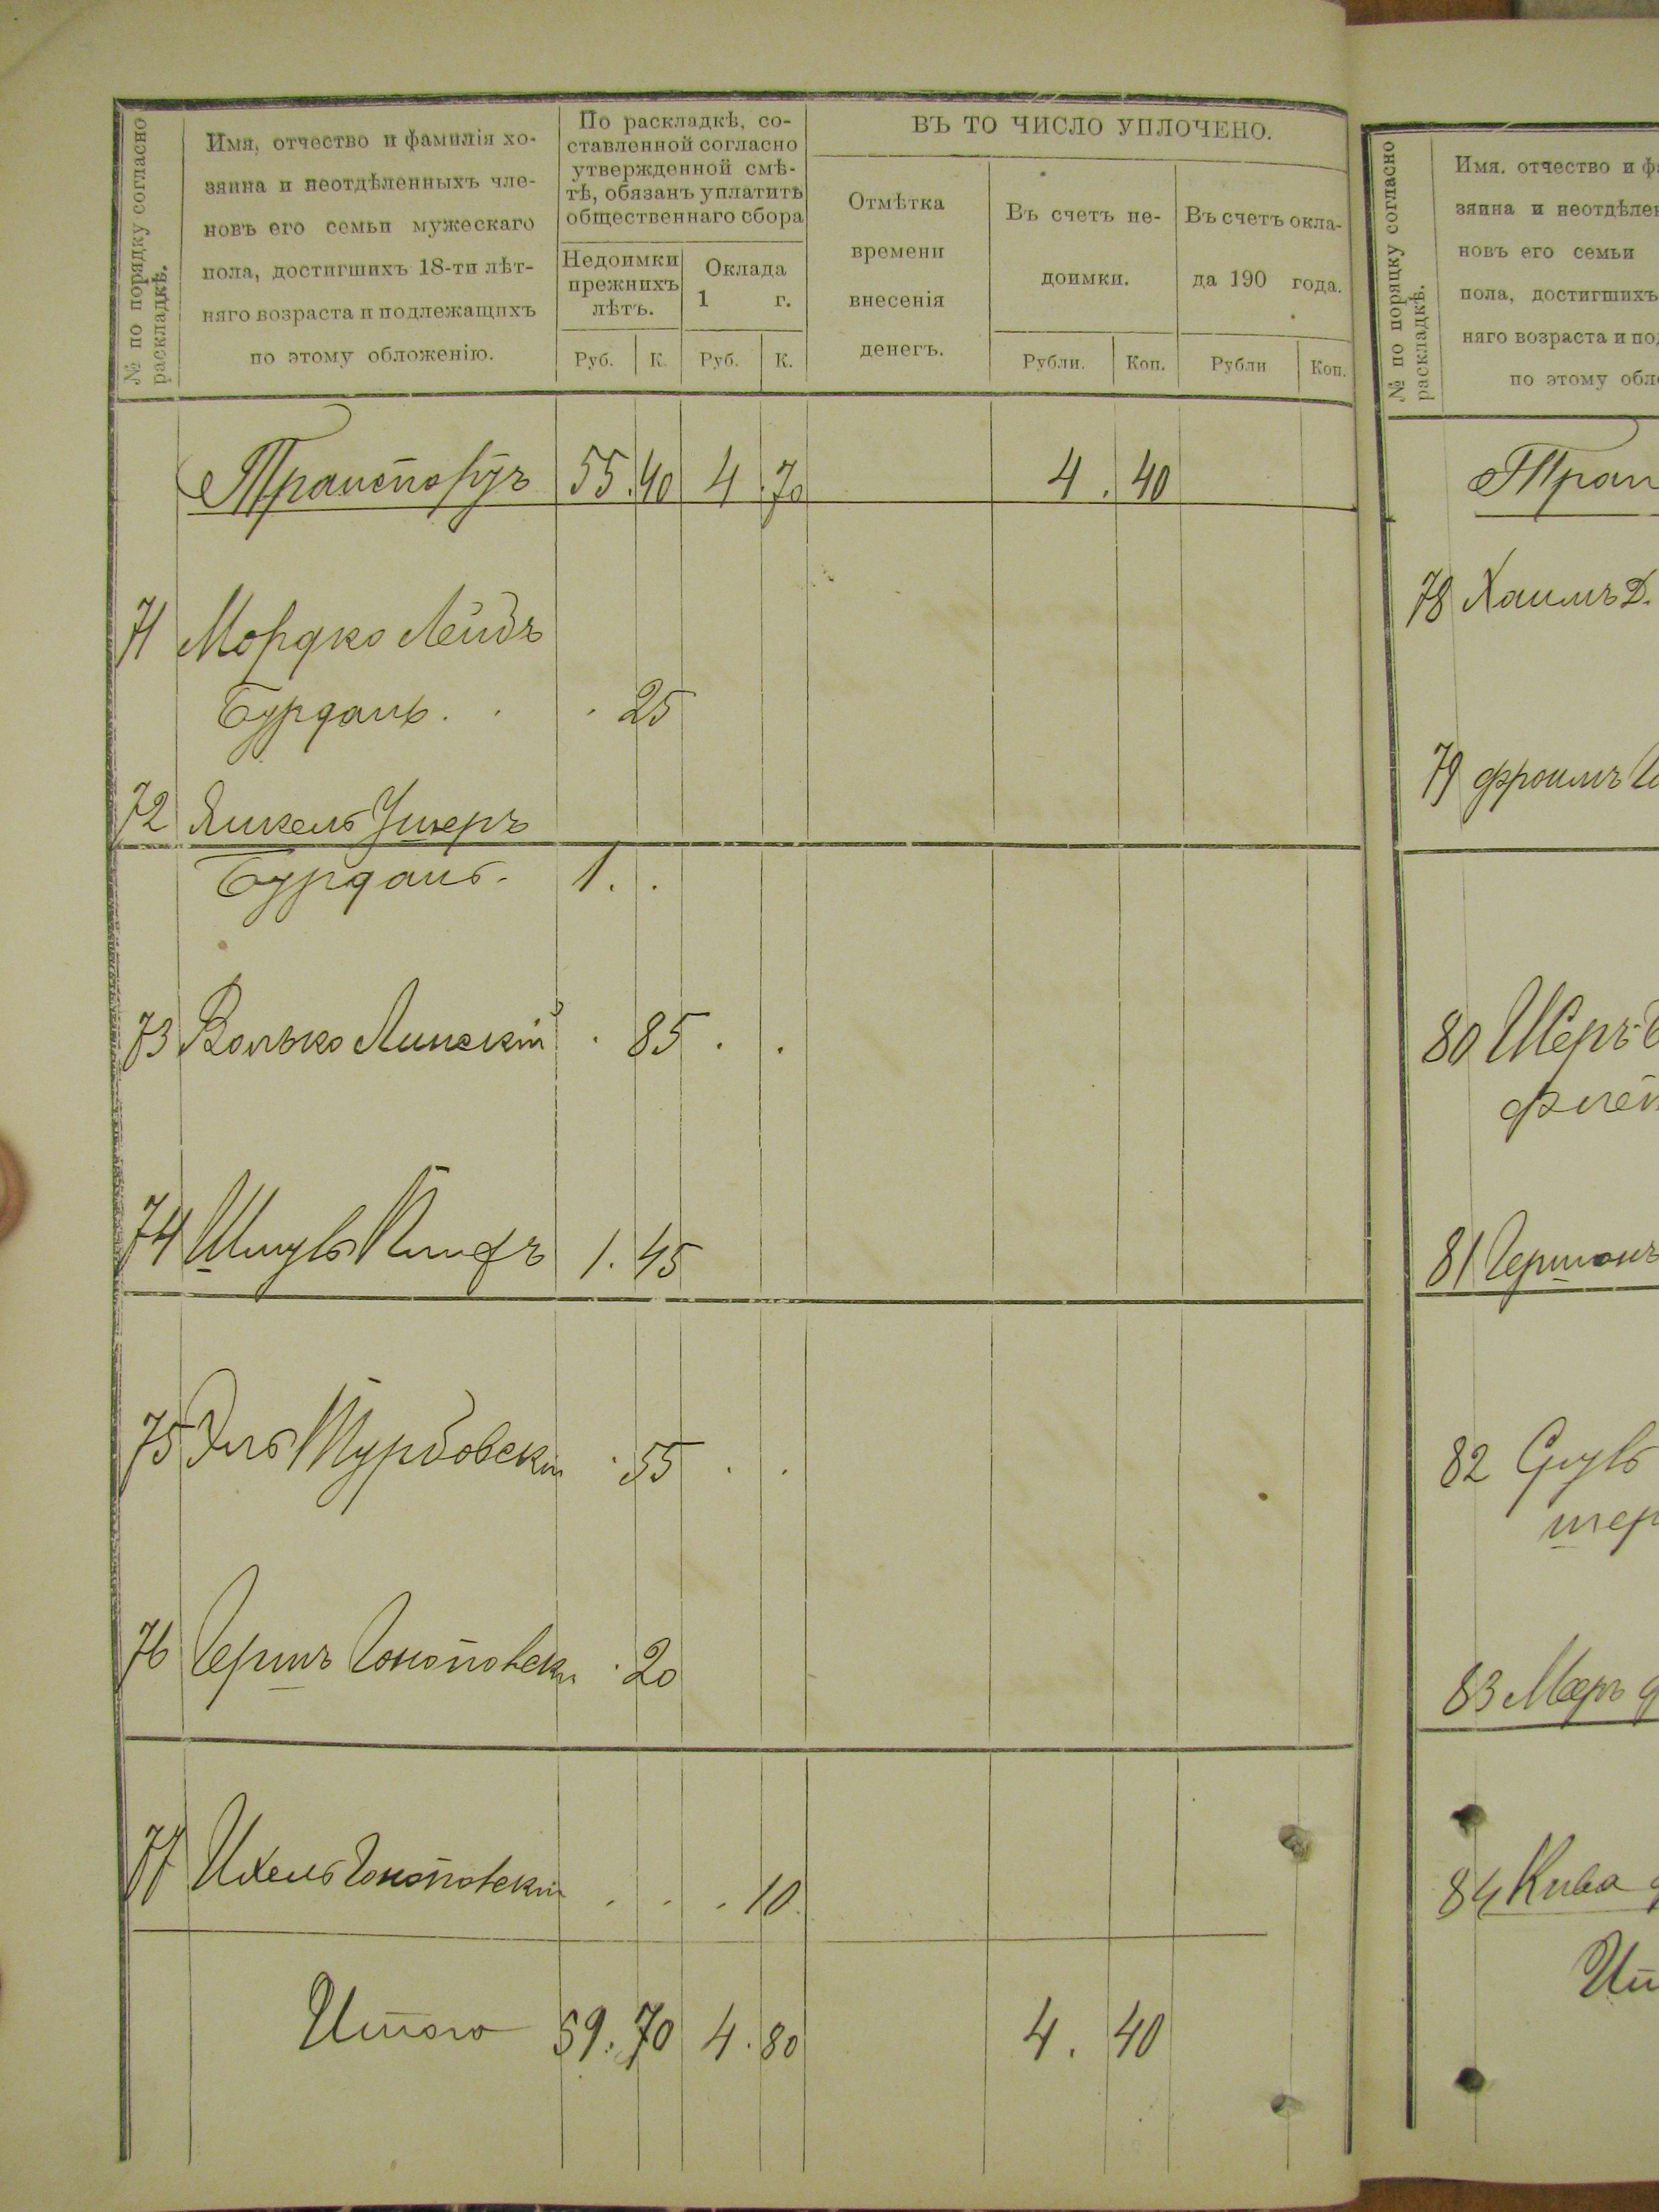 № по порядку согласно раскладкѣ.
Имя, отчество и фамилія хо-
зяина и неотдѣленныхъ чле-
новъ его семьи мужескаго
пола, достигшихъ 18-ти лѣт-
няго возраста и подлежащихъ
по этому обложенію.
По раскладкѣ, со-
ставленной согласно
утвержденной смѣ-
тѣ, обязанъ уплатить
общественнаго сбора
Недоимки
прежнихъ
лѣтъ.
Оклада
1 г.
Руб. К. Руб. К.
ВЪ ТО ЧИСЛО УПЛОЧЕНО.
Отмѣтка
времени
внесенія
денегъ.
Въ счетъ не-
доимки.
Рубли. Коп.
Въ счетъ окла-
да 190 года.
Рубли Коп.
Транспортъ 55.40 4.70 4.40
71 Мордко Лейбъ
Бурданъ . . . 25
72 Янкель Ушеръ
Бурдань. 1. .
73 Волько Линскій . 85 . .
74 Шмуль 1.45
75 Эль Турбовскій . 55 . .
76 Гершъ Гонотовскі . 20
77 Ихель Гонотовскій . . . 10
Итого 59.70 4.80 4.40
№ по порядку согласно раскладкѣ.
Имя, отчество и фа
зяина и неотдѣлен
новъ его семьи
пола, достигшихъ
няго возраста и под
по этому обло
Тран
78 Хаимъ Д.
79 Фроимъ
80 Шеръ
флей
81 Гершонъ
82 Сруль
шер
83 Меръ
84 Кива
Ит